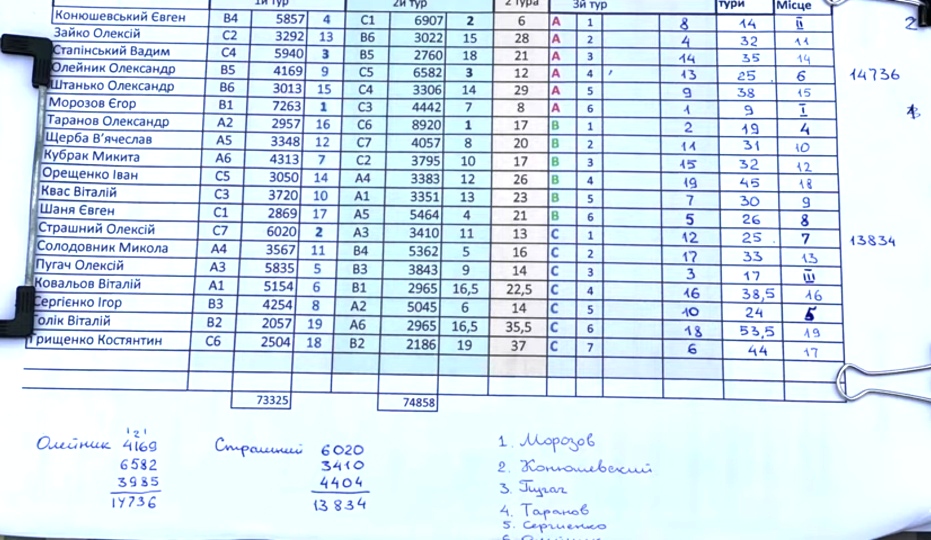 1й тур 2й тур 2 тура 3й тур тури Місце
Конюшевський Євген B4 5857 4 C1 6907 2 6 A 1 8 14 II 2
Зайко Олексій C2 3292 13 B6 3022 15 28 A 2 4 32 11
Стапінський Вадим C4 5940 3 B5 2760 18 21 A 3 14 35 14
Олейник Олександр B5 4169 9 C5 6582 3 12 A 4 13 25 6 14736
Штанько Олександр B6 3013 15 C4 3306 14 29 A 5 9 38 15
Морозов Єгор B1 7263 1 C3 4442 7 8 A 6 1 9 I
Таранов Олександр A2 2957 16 C6 8920 1 17 B 1 2 19 4
Щерба В'ячеслав A5 3348 12 C7 4057 8 20 B 2 11 31 10
Кубрак Микита A6 4313 7 C2 3795 10 17 B 3 15 32 12
Орещенко Іван C5 3050 14 A4 3383 12 26 B 4 19 45 18
Квас Віталій C3 3720 10 A1 3351 13 23 B 5 7 30 9
Шаня Євген C1 2869 17 A5 5464 4 21 B 6 5 26 8
Страшний Олексій C7 6020 2 A3 3410 11 13 C 1 12 25 7 13834
Солодовник Микола A4 3567 11 B4 5362 5 16 C 2 17 33 13
Пугач Олексій A3 5835 5 B3 3843 9 14 C 3 3 17 III
Ковальов Віталій A1 5154 6 B1 2965 16,5 22,5 C 4 16 38,5 16
Сергієнко Ігор B3 4254 8 A2 5045 6 14 C 5 10 24 5
Голік Віталій B2 2057 19 A6 2965 16,5 35,5 C 6 18 53,5 19
Грищенко Костянтин C6 2504 18 B2 2186 19 37 C 7 6 44 17
73325 74858
1 2 1
Олейник 4169
6582
3985
14736
Страшний 6020
3410
4404
13834
1. Морозов
2. Конюшевский
3. Пугач
4. Таранов
5. Сергиенко
6. Олейник